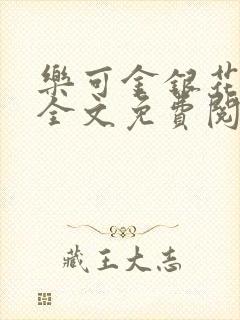 樂可金銀花
全文免費閱
藏王大志